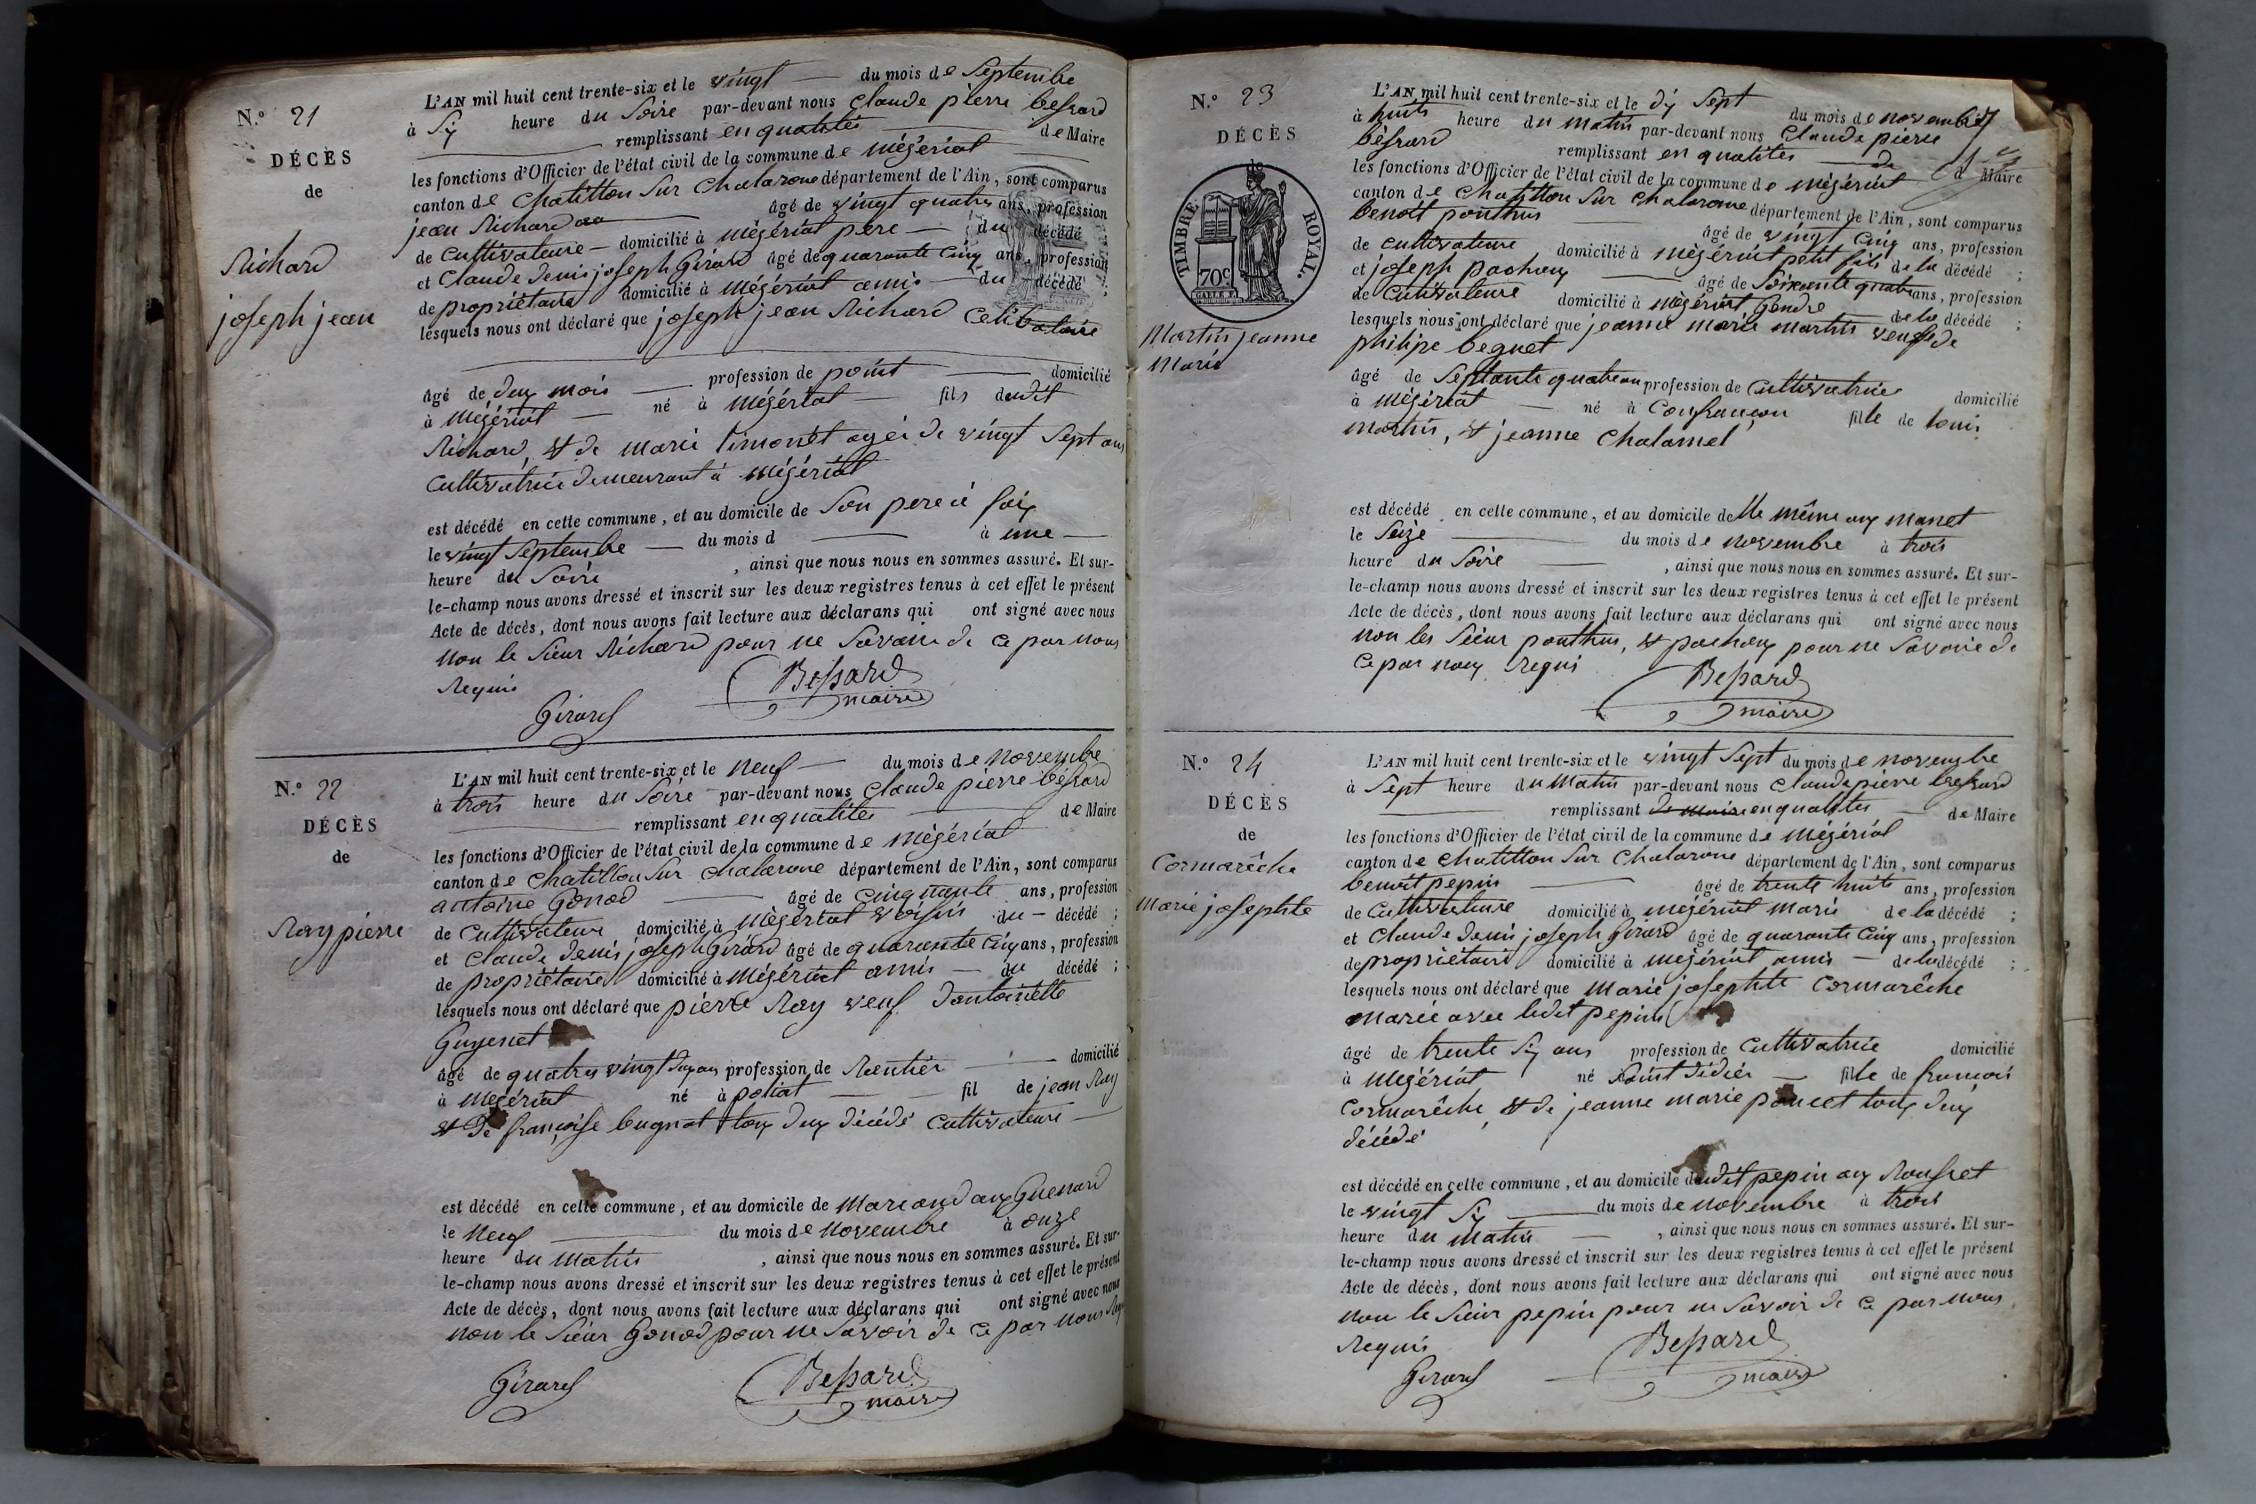 N.° 21
DÉCÈS
de
Richard
joseph jean
L'AN mil huit cent trente-six et le vingt du mois de Septembre
à Six heure du Soire par-devant nous claude pierre bessard
remplissant en qualités de Maire
les fonctions d'Officier de l'état civil de la commune de mégériat
canton de Chatillon Sur Chalarone département de l'Ain, sont comparus
jean Richard âgé de vingt quatre ans, profession
de Cultivateure domicilié à mégériat père du décédé
et Claude denis joseph Girard âgé de quarante Cinq ans, profession
de propriétaire domicilié à mégériat amis du décédé ;
lesquels nous ont déclaré que joseph jean Richard Celibataire
âgé de deux mois profession de point domicilié
à mégériat né à mégériat fils dudit
Richard, et de marie limonét agéé de vingt Sept ans
Cultivatrice demeurant à mégériat
est décédé en cette commune, et au domicile de Son pere à
le vingt Septembre du mois d à une
heure du Soire , ainsi que nous nous en sommes assuré. Et sur-
le-champ nous avons dressé et inscrit sur les deux registres tenus à cet effet le présent
Acte de décès, dont nous avons fait lecture aux déclarans qui ont signé avec nous
non le Sieur Richard pour ne Savoir de ce par nous
Requis
Girard Bessard
maire
N.° 22
DÉCÈS
de
Ray pierre
L'AN mil huit cent trente-six et le neuf du mois de novembre
à trois heure du Soire par-devant nous Claude pierre béssard
remplissant en qualités de Maire
les fonctions d'Officier de l'état civil de la commune de mégériat
canton de Chatillon Sur Chalarone département de l'Ain, sont comparus
antoine Gonod âgé de cinquante ans, profession
de Cultivateur domicilié à mégériat voisin du décédé ;
et Claude denis joseph Girard âgé de quarante Cinq ans, profession
de propriétaire domicilié à mégériat amis du décédé ;
lesquels nous ont déclaré que pierre Ray veuf dantoinette
Guyenet
âgé de quatre vingt ans profession de Rentier domicilié
à mégériat né à poliat fil de jean Ray
et De françoise bugnot tous deux décédé Cultivateure
est décédé en cette commune, et au domicile de aux Guenard
le neuf du mois de novembre à onze
heure du matin , ainsi que nous nous en sommes assuré. Et sur-
le-champ nous avons dressé et inscrit sur les deux registres tenus à cet effet le présent
Acte de décès, dont nous avons fait lecture aux déclarans qui ont signé avec nous
non le Sieur Gonod pour ne Savoir de ce par nous
Girard Bessard
maire
N.° 23
DÉCÈS
de
TIMBRE ROYAL.
70c
Martin jeanne
Marie
L'AN mil huit cent trente-six et le dix Sept du mois de novembre
à huit heure du matin par-devant nous Claude pierre
béssard remplissant en qualites de Maire
les fonctions d'Officier de l'état civil de la commune de mégériat
canton de Chatillon Sur Chalarone département de l'Ain, sont comparus
benoit ponthus âgé de vingt Cinq ans, profession
de cultivateure domicilié à mégériat petit fils de la décédé ;
et joseph pachoux âgé de Soixante quatre ans, profession
de Cultivateure domicilié à mégériat Gendre de la décédé ;
lesquels nous ont déclaré que jeanne marie martin veuf de
philipe beguet
âgé de Septante quatre an profession de Cultivatrice domicilié
à mégériat né à Confrançon fille de louis
martin, et jeanne Chalamel
est décédé en cette commune, et au domicile de Elle même aux manet
le Seize du mois de novembre à trois
heure du Soire , ainsi que nous nous en sommes assuré. Et sur-
le-champ nous avons dressé et inscrit sur les deux registres tenus à cet effet le présent
Acte de décès, dont nous avons fait lecture aux déclarans qui ont signé avec nous
non les Sieur ponthus, et pachoux pour ne Savoire de
ce par nous Requi
Bessard
maire
N.° 24
DÉCÈS
de
Cormarêche
marie josephte
L'AN mil huit cent trente-six et le vingt Sept du mois de novembre
à Sept heure du Matin par-devant nous Claude pierre bessard
remplissant de maire en qualités de Maire
les fonctions d'Officier de l'état civil de la commune de mégériat
canton de Chatillon Sur Chalarone département de l'Ain, sont comparus
benoit pepin âgé de trente huit ans, profession
de Cultivateure domicilié à mégériat maris de la décédé ;
et Claude denis joseph Girard âgé de quarante Cinq ans, profession
de propriétaire domicilié à mégériat amis de la décédé ;
lesquels nous ont déclaré que marie josephte Cormarêche
mariée avec ledit pepin
âgé de trente Six ans profession de Cultivatrice domicilié
à mégériat né Saint didier fille de françois
Cormarêche, et de jeanne marie poncet tous deux
décédé
est décédé en cette commune, et au domicile dudit pepin aux Rousset
le vingt Six du mois de novembre à trois
heure du Matin , ainsi que nous nous en sommes assuré. Et sur-
le-champ nous avons dressé et inscrit sur les deux registres tenus à cet effet le présent
Acte de décès, dont nous avons fait lecture aux déclarans qui ont signé avec nous
non le Sieur pepin pour ne Savoir de ce par nous
Requis
Girard Bessard
maire